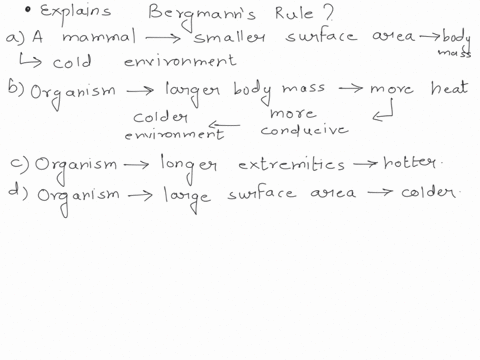 • Explains Bergmann's Rule ?
a) A mammal → smaller surface area → body mass
↳ cold environment
b) Organism → larger body mass → more heat
colder environment ← more conducive ↵
c) Organism → longer extremities → hotter.
d) Organism → large surface area → colder.